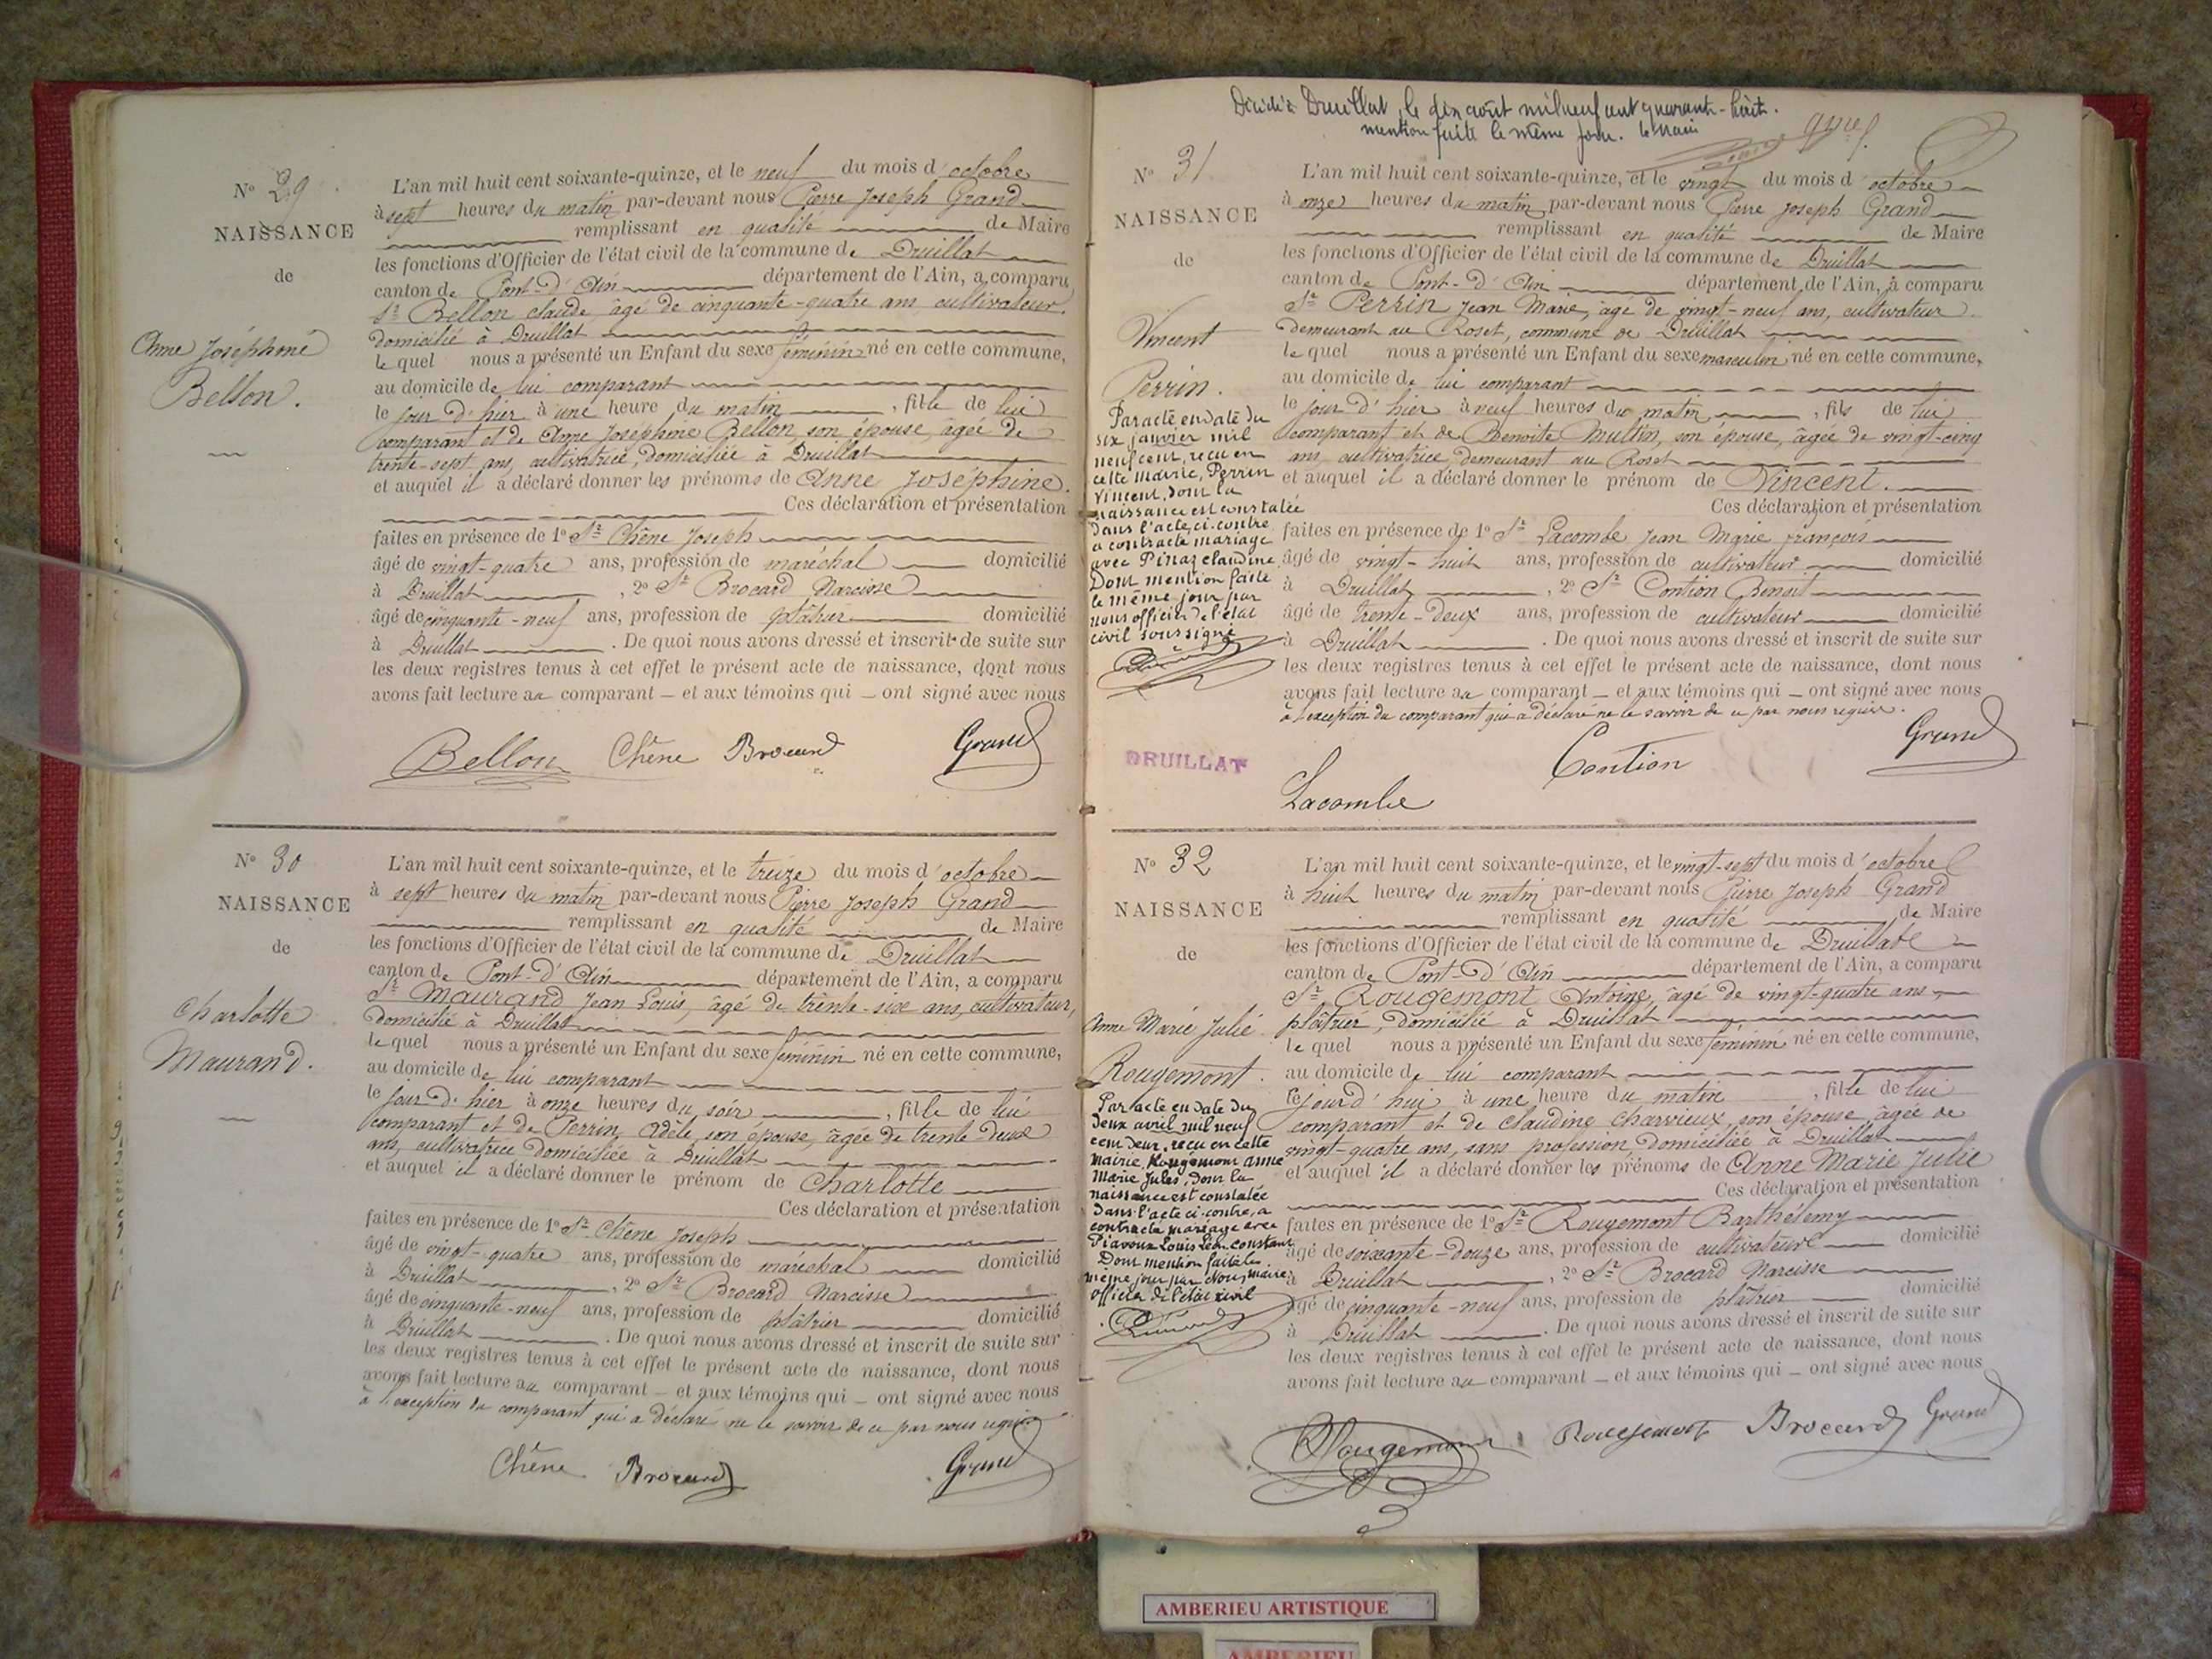 N° 29
NAISSANCE
de
Anne Joséphine
Bellon.
L'an mil huit cent soixante-quinze, et le neuf du mois d'octobre
à sept heures du matin par-devant nous Pierre Joseph Grand
remplissant en qualité de Maire
les fonctions d'Officier de l'état civil de la commune de Druillat
canton de Pont-d'Ain département de l'Ain, a comparu
Sr Bellon claude âgé de cinquante-quatre ans cultivateur.
domicilié à Druillat
lequel nous a présenté un Enfant du sexe féminin né en cette commune,
au domicile de lui comparant
le jour d'hier à une heure du matin, fille de lui
comparant et de Anne Joséphine Bellon, son épouse, âgée de
trente-sept ans, cultivatrice, domiciliée à Druillat
et auquel il a déclaré donner les prénoms de Anne Joséphine.
Ces déclaration et présentation
faites en présence de 1° Sr Chêne Joseph
âgé de vingt-quatre ans, profession de maréchal domicilié
à Druillat, 2° Sr Brocard Narcisse
âgé de cinquante-neuf ans, profession de plâtrier domicilié
à Druillat. De quoi nous avons dressé et inscrit de suite sur
les deux registres tenus à cet effet le présent acte de naissance, dont nous
avons fait lecture au comparant – et aux témoins qui – ont signé avec nous
Bellon Chêne Brocard Grand
N° 30
NAISSANCE
de
Charlotte
Maurand.
L'an mil huit cent soixante-quinze, et le treize du mois d'octobre
à sept heures du matin par-devant nous Pierre Joseph Grand
remplissant en qualité de Maire
les fonctions d'Officier de l'état civil de la commune de Druillat
canton de Pont-d'Ain département de l'Ain, a comparu
Sr Maurand Jean Louis, âgé de trente-six ans, cultivateur,
domicilié à Druillat
lequel nous a présenté un Enfant du sexe féminin né en cette commune,
au domicile de lui comparant
le jour d'hier à onze heures du soir, fille de lui
comparant et de Perrin Adèle son épouse, âgée de trente-deux
ans, cultivatrice domiciliée à Druillat
et auquel il a déclaré donner le prénom de Charlotte
Ces déclaration et présentation
faites en présence de 1° Sr Chêne Joseph
âgé de vingt-quatre ans, profession de maréchal domicilié
à Druillat, 2° Sr Brocard Narcisse
âgé de cinquante-neuf ans, profession de plâtrier domicilié
à Druillat. De quoi nous avons dressé et inscrit de suite sur
les deux registres tenus à cet effet le présent acte de naissance, dont nous
avons fait lecture au comparant – et aux témoins qui – ont signé avec nous
à l'exception du comparant qui a déclaré ne le savoir de ce par nous requis
Chêne Brocard Grand
Décédé à Druillat, le dix août mil neuf cent quarante-huit.
mention faite le même jour. le Maire
N° 31
NAISSANCE
de
Vincent
Perrin.
Par acte en date du
six janvier mil
neuf cent, reçu en
cette mairie, Perrin
Vincent, dont la
naissance est constatée
dans l'acte ci-contre
a contracté mariage
avec Pinaz claudine
Dont mention faite
le même jour par
nous officier de l'état
civil soussigné
DRUILLAT
L'an mil huit cent soixante-quinze, et le vingt du mois d'octobre
à onze heures du matin par-devant nous Pierre Joseph Grand
remplissant en qualité de Maire
les fonctions d'Officier de l'état civil de la commune de Druillat
canton de Pont-d'Ain département de l'Ain, a comparu
Sr Perrin Jean Marie, âgé de vingt-neuf ans, cultivateur
demeurant au Roset, commune de Druillat
lequel nous a présenté un Enfant du sexe masculin né en cette commune,
au domicile de lui comparant
le jour d'hier à neuf heures du matin, fils de lui
comparant et de Benoite Multin, son épouse, âgée de vingt-cinq
ans, cultivatrice demeurant au Roset
et auquel il a déclaré donner le prénom de Vincent.
Ces déclaration et présentation
faites en présence de 1° Sr Lacombe Jean Marie françois
âgé de vingt-huit ans, profession de cultivateur domicilié
à Druillat, 2° Sr Contion Benoit
âgé de trente-deux ans, profession de cultivateur domicilié
à Druillat. De quoi nous avons dressé et inscrit de suite sur
les deux registres tenus à cet effet le présent acte de naissance, dont nous
avons fait lecture au comparant – et aux témoins qui – ont signé avec nous
à l'exception du comparant qui a déclaré ne le savoir de ce par nous requis.
Lacombe Contion Grand
N° 32
NAISSANCE
de
Anne Marie Julie
Rougemont.
Par acte en date du
deux avril mil neuf
cent deux, reçu en cette
mairie, Rougemont Anne
Marie Jules, dont la
naissance est constatée
dans l'acte ci-contre, a
contracté mariage avec
Piavoux Louis Léon constant
Dont mention faite le
même jour par Nous, maire
officier de l'état civil
L'an mil huit cent soixante-quinze, et le vingt-sept du mois d'octobre
à huit heures du matin par-devant nous Pierre Joseph Grand
remplissant en qualité de Maire
les fonctions d'Officier de l'état civil de la commune de Druillat
canton de Pont-d'Ain département de l'Ain, a comparu
Sr Rougemont Antoine, âgé de vingt-quatre ans
plâtrier, domicilié à Druillat
lequel nous a présenté un Enfant du sexe féminin né en cette commune,
au domicile de lui comparant
le jour d'hui à une heure du matin, fille de lui
comparant et de Claudine Charvieux, son épouse âgée de
vingt-quatre ans, sans profession, domiciliée à Druillat
et auquel il a déclaré donner les prénoms de Anne Marie Julie
Ces déclaration et présentation
faites en présence de 1° Sr Rougemont Barthélemy
âgé de soixante-douze ans, profession de cultivateur domicilié
à Druillat, 2° Sr Brocard Narcisse
âgé de cinquante-neuf ans, profession de plâtrier domicilié
à Druillat. De quoi nous avons dressé et inscrit de suite sur
les deux registres tenus à cet effet le présent acte de naissance, dont nous
avons fait lecture au comparant – et aux témoins qui – ont signé avec nous
Rougemont Rougemont Brocard Grand
AMBERIEU ARTISTIQUE
AMBERIEU